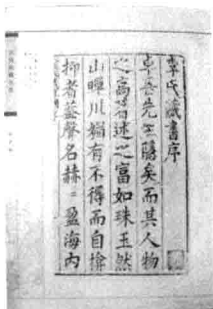 李氏藏書序
卓吾先生隱矣而其人物
之高著述之富如珠玉然
山暉川媚有不得而自揜
抑者蓋聲名赫〻盈海內